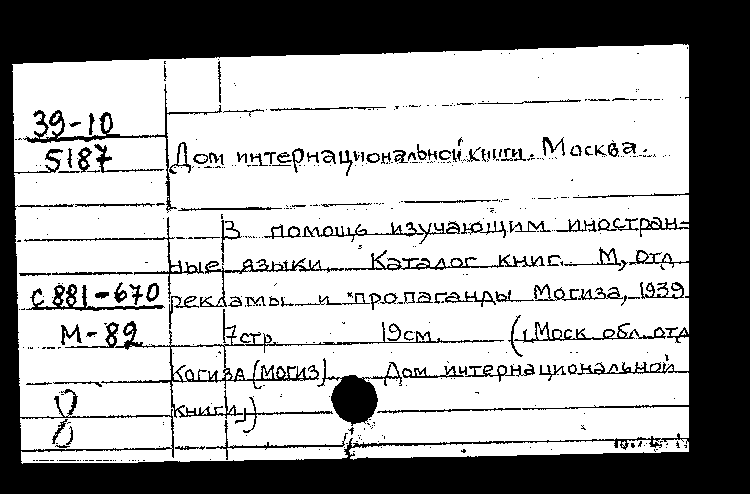 39-10
5187
Дом интернациональной книги. Москва.
В помощь изучающим иностран-
ные языки. Каталог книг. М, отд
с 881-670
рекламы и пропаганды Могиза, 1939
М-82
7стр. 19см. (Моск обл. отд
Когиза (МОГИЗ). Дом интернациональной
книги)
8